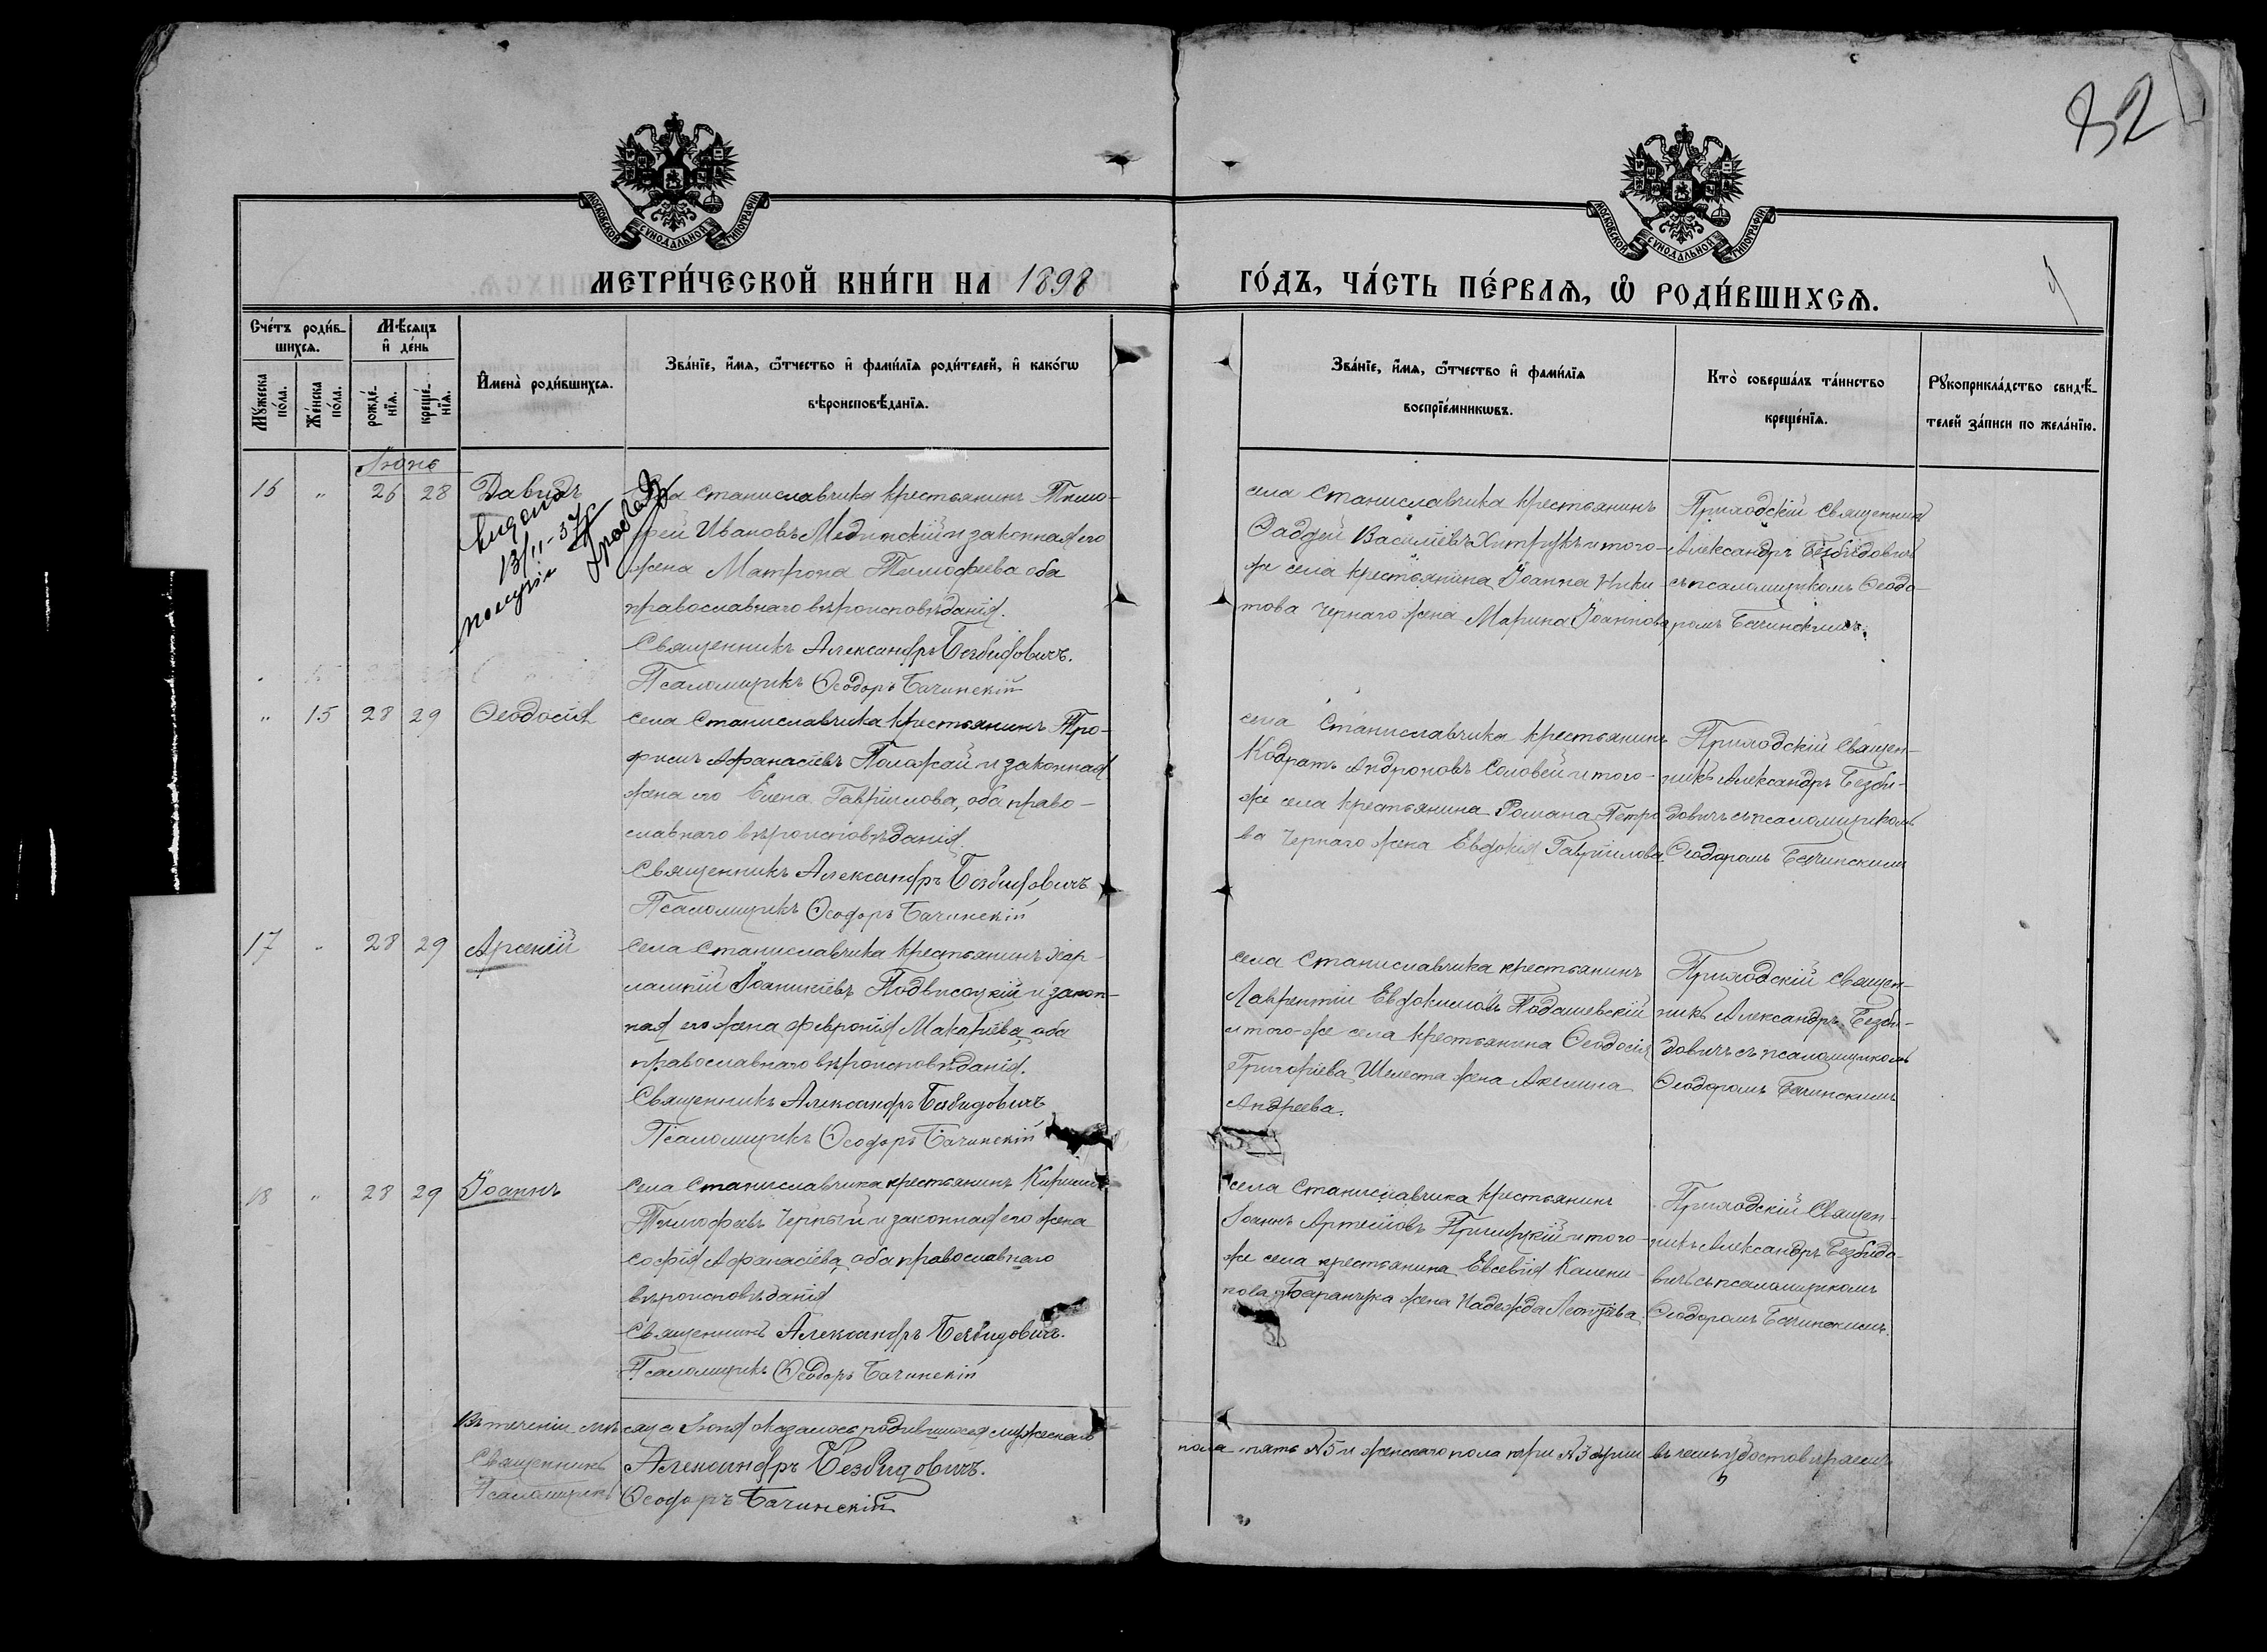 82
МОСКОВСКОЙ СѴНОДАЛЬНОЙ ТИПОГРАФІИ
МОСКОВСКОЙ СѴНОДАЛЬНОЙ ТИПОГРАФІИ
МЕТРИ́ЧЕСКОЙ КНИ́ГИ НА 1898 ГО́ДЪ, ЧА́СТЬ ПЕ́РВАЯ, Ѡ РОДИ́ВШИХСЯ.
Сче́тъ роди́в-
шихсѧ.
Мꙋ́жеска по́ла.
Же́нска по́ла.
Мѣ́сѧцъ и де́нь
рожде́-
нїѧ.
креще́-
нїѧ.
Имена̀ роди́вшихсѧ.
Зва́нїе, и́мѧ, ѻ́тчество и фами́лїѧ роди́телей, и како́гѡ
вѣроисповѣ́данїѧ.
Зва́нїе, и́мѧ, ѻ́тчество и фами́лїѧ
воспрїе́мникѡвъ.
Кто̀ соверша́лъ та́инство
креще́нїѧ.
Рꙋкоприкла́дство свидѣ́-
телей за́писи по жела́нїю.
Іюнь
16 " 26 28 Давидъ
13/11-37
Села Станиславчика крестьянинъ Тимо-
фей Ивановъ Мединскій и законная его
жена Матрона Тимофеева оба
православнаго вѣроисповѣданія.
Священникъ Александръ Безбидовичъ.
Псаломщикъ Ѳеодоръ Бачинскій
села Станиславчика крестьянинъ
Ѳаддей Василіевъ Хитрукъ и того-
же села крестьянина Іоанна Ники-
това Чернаго жена Марина Іоаннова
Приходскій Священникъ
Александръ Безбидовичъ
съ псаломщикомъ Ѳеодо-
ромъ Бачинскимъ.
" 15 28 29 Ѳеодосія
Села Станиславчика крестьянинъ Тро-
фимъ Афанасіевъ Положай и законная
жена его Елена Гавріилова, оба право-
славнаго вѣроисповѣданія.
Священникъ Александръ Безбидовичъ
Псаломщикъ Ѳеодоръ Бачинскій
села Станиславчика крестьянинъ
Кодратъ Андроновъ Соловей и того-
же села крестьянина Романа Петро
ва Чернаго жена Евдокія Гавріилова.
Приходскій Священ-
никъ Александръ Безби-
довичъ съ псаломщикомъ
Ѳеодоромъ Бачинскимъ
17 " 28 29 Арсеній
Села Станиславчика крестьянинъ Хар-
лампій Іоанникіевъ Подвисоцкій и закон-
ная его жена Февронія Макаріева, оба
православнаго вѣроисповѣданія.
Священникъ Александръ Безбидовичъ
Псаломщикъ Ѳеодоръ Бачинскій
Села Станиславчика крестьянинъ
Лаврентій Евдокимовъ Подашевскій
и того-же села крестьянина Ѳеодосія
Григоріева Шелеста жена Акилина
Андреева.
Приходскій Священ-
никъ Александръ Безби-
довичъ съ псаломщикомъ
Ѳеодоромъ Бачинскимъ
18 " 28 29 Іоаннъ
Села Станиславчика крестьянинъ Кириллъ
Тимофеевъ Черный и законная его жена
Софія Афанасіева, оба православнаго
вѣроисповѣданія
Священникъ Александръ Безбидовичъ.
Псаломщикъ Ѳеодоръ Бачинскій
села Станиславчика крестьянинъ
Іоаннъ Артемовъ и того-
же села крестьянина Евсевія Калени-
кова Баранчука жена Надежда Леонтіева.
Приходскій Священ-
никъ Александръ Безбидо-
вичъ съ псаломщикомъ
Ѳеодоромъ Бачинскимъ.
Въ теченіи мѣсяца Іюня оказалось родившихся мужескаго пола пять №5 и женскаго пола три №3 души въ чемъ удостовѣряемъ
Священникъ Александръ Безбидовичъ.
Псаломщикъ Ѳеодоръ Бачинскій